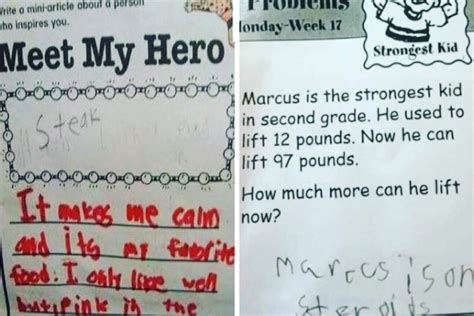 Write a mini-article about a person
who inspires you.
Meet My Hero
Steak
It makes me calm
and its my faforite
food. I only like well
but pink in the
Problems
Monday-Week 17
Strongest Kid
Marcus is the strongest kid
in second grade. He used to
lift 12 pounds. Now he can
lift 97 pounds.
How much more can he lift
now?
Marcus is on
steroids